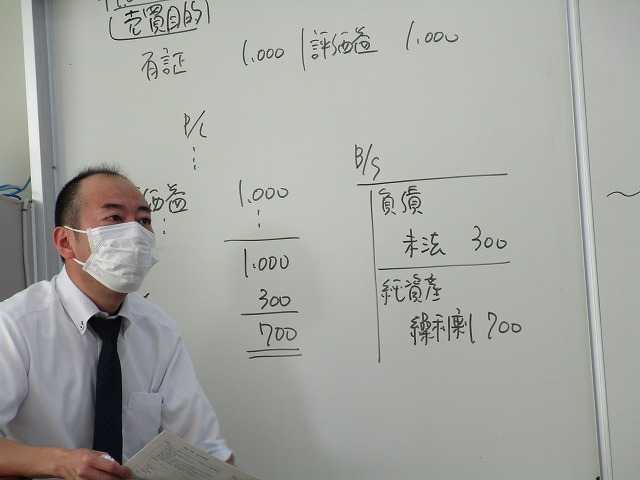 (売買目的)
有証 1.000 評価益 1.000
P/L
価益 1.000
1.000
300
700
B/S
負債
未法 300
純資産
繰利剰 700